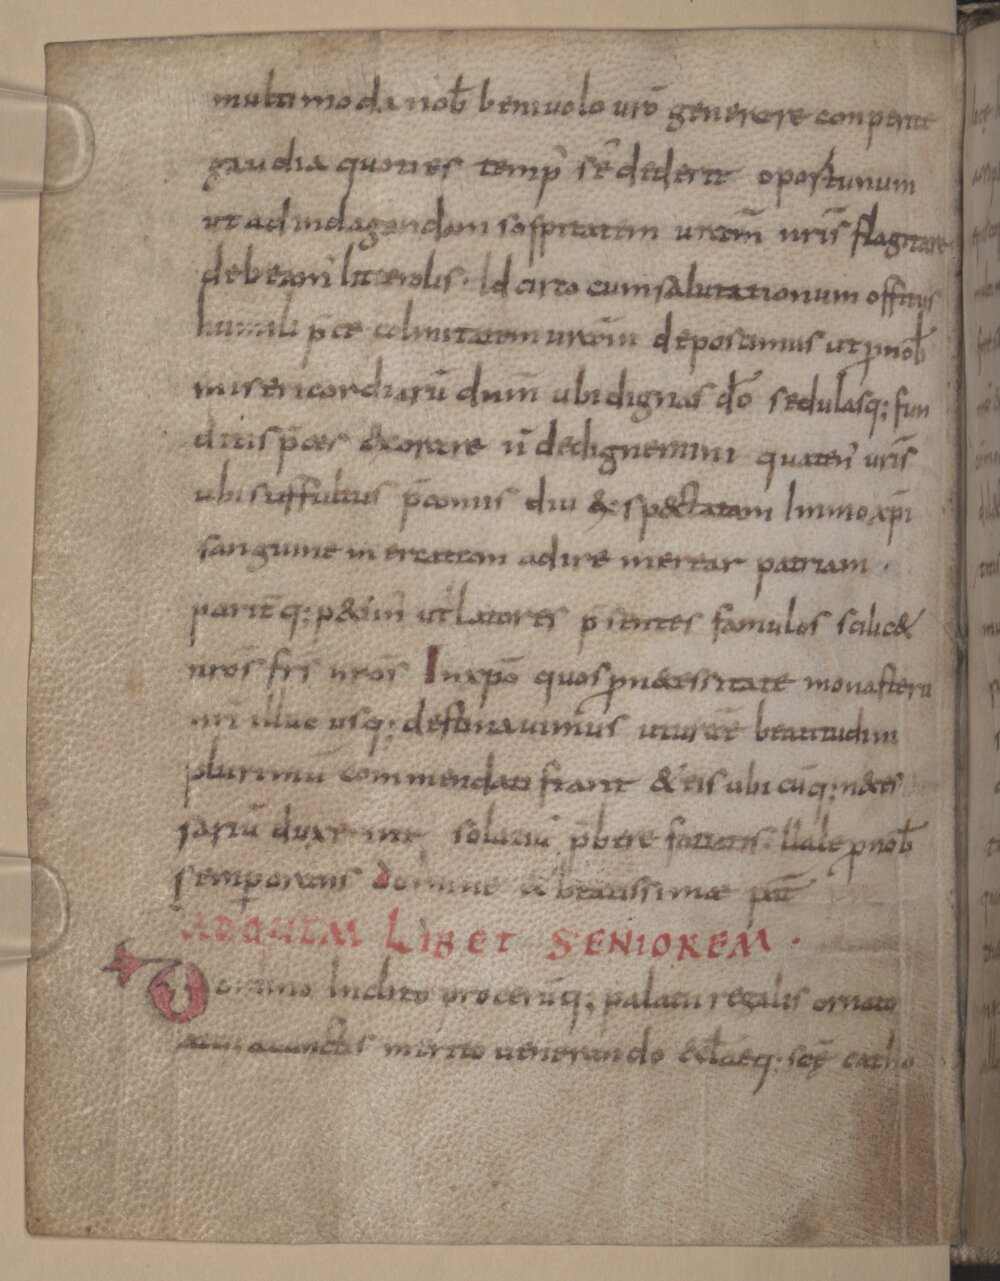 multimoda nob̄ benivolo vr̄o generare conperite
gaudia quoties temp̄ sē dederit oportunum
ut ad indagandam sospitatem vestrm̄ vr̄is flagitare
debeam litterolis. Idcirco cum salutationum offitiis
humili p̄ce vestrām deposcimus ut ꝓ nob̄
misericordiarū dnm̄ ubi dignas dō sedulasq; fun
ditis p̄ces exorare n̄ dedignemini quaten̄ vr̄is
ubi suffultus p̄cāmis diu & sp&ctatam Immo xp̄i
sanguine mercatam adire merear patriam .
paritq; p&im̄ ut latores p̄sentes famulos scilic&
vr̄os frs̄ nr̄ōs In xp̄o quos ꝓ necessitate monasterii
nr̄i illuc usq; destinavimus ut vrāe beatitudini
plurimū commendati fiant & eis ubicūq; n&es
sariū duxerint solatiū p̄bere faciatis. Uale ꝓ nob̄
semper orans domine & beatissime pat̄
AD QUEM LIBET SENIOREM .
Domino Inclito procerūq; palatii regalis ornato
atq; a cunctis merito venerando scē̄ catho